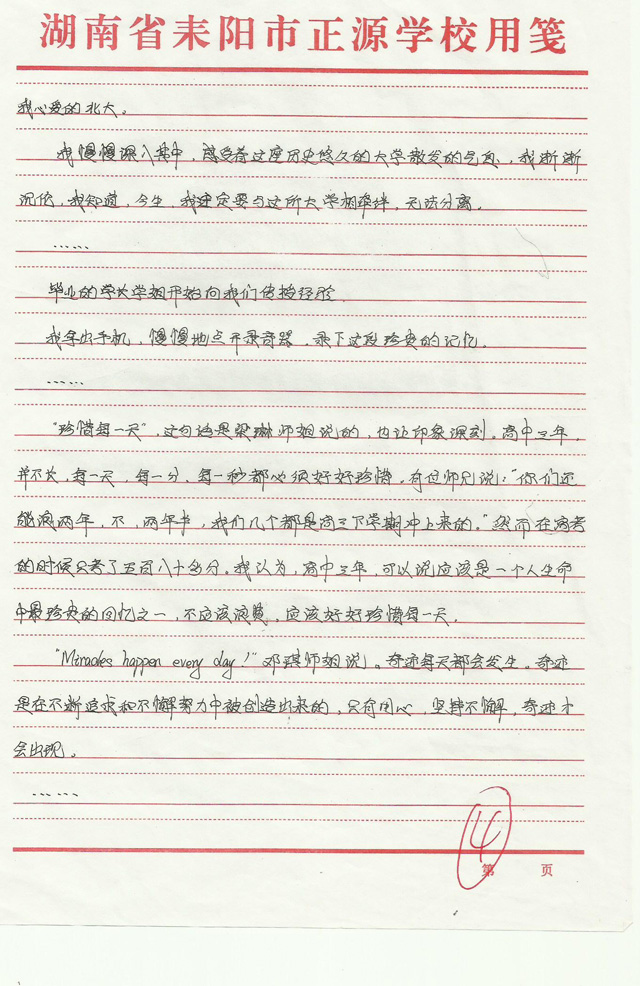 湖南省耒阳市正源学校用笺
我心爱的北大。
我慢慢深入其中，感受着这座历史悠久的大学散发的气息，我渐渐
沉依，我知道，今生，我注定要与这所大学相牵绊，无法分离。
……
毕业的学长学姐开始向我们传授经验
我拿出手机，慢慢地点开录音器，录下这段珍贵的记忆。
……
"珍惜每一天"，这句话是梁琳师姐说的，也让印象深刻。高中三年，
并不长，每一天，每一分，每一秒都必须好好珍惜。有位师兄说："你们还
能浪两年，不，两年半，我们几个都是高三下学期冲上来的。"然而在高考
的时候只考了五百八十多分。我认为，高中三年，可以说应该是一个人生命
中最珍贵的回忆之一，不应该浪费，应该好好珍惜每一天。
"Miracles happen every day!"邓琪师姐说。奇迹每天都会发生。奇迹
是在不断追求和不懈努力中被创造出来的，只有用心，坚持不懈，奇迹才
会出现。
……
4
第 页